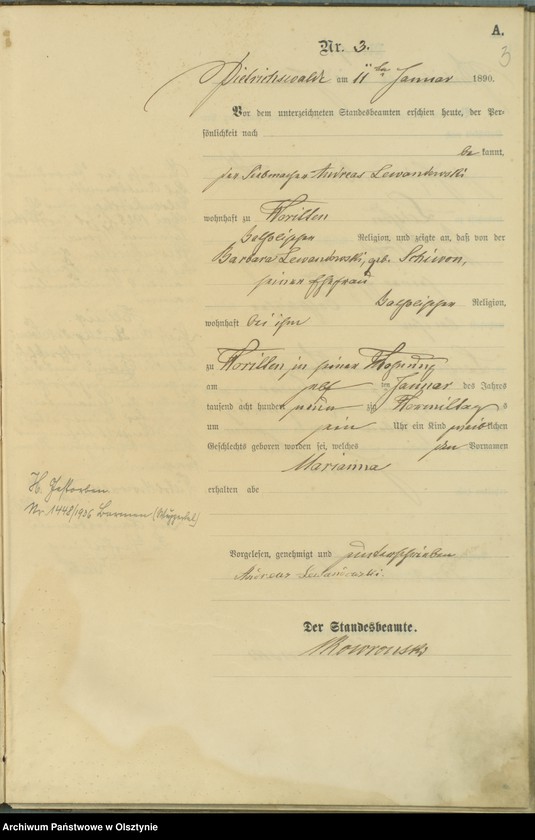 A.
3
Nr. 3.
Dietrichswalde am 11 ten Januar 1890.
Vor dem unterzeichneten Standesbeamten erschien heute, der Per-
sönlichkeit nach
be kannt,
der Andreas Lewandowski
wohnhaft zu Woritten
katholischer Religion, und zeigte an, daß von der
Barbara Lewandowski, geb. Schiwon,
seiner Ehefrau
katholischer Religion,
wohnhaft bei ihm
zu Woritten, in seiner Wohnung
am elf ten Januar des Jahres
tausend acht hundert neun zig Vormittag s
um Uhr ein Kind weib lichen
Geschlechts geboren worden sei, welches den Vornamen
Marianna
erhalten abe
H. Gestorben
Nr. 1448/1936 Barmen (Wuppertal)
Vorgelesen, genehmigt und unterschrieben
Andreas Lewandowski.
Der Standesbeamte.
Archiwum Państwowe w Olsztynie